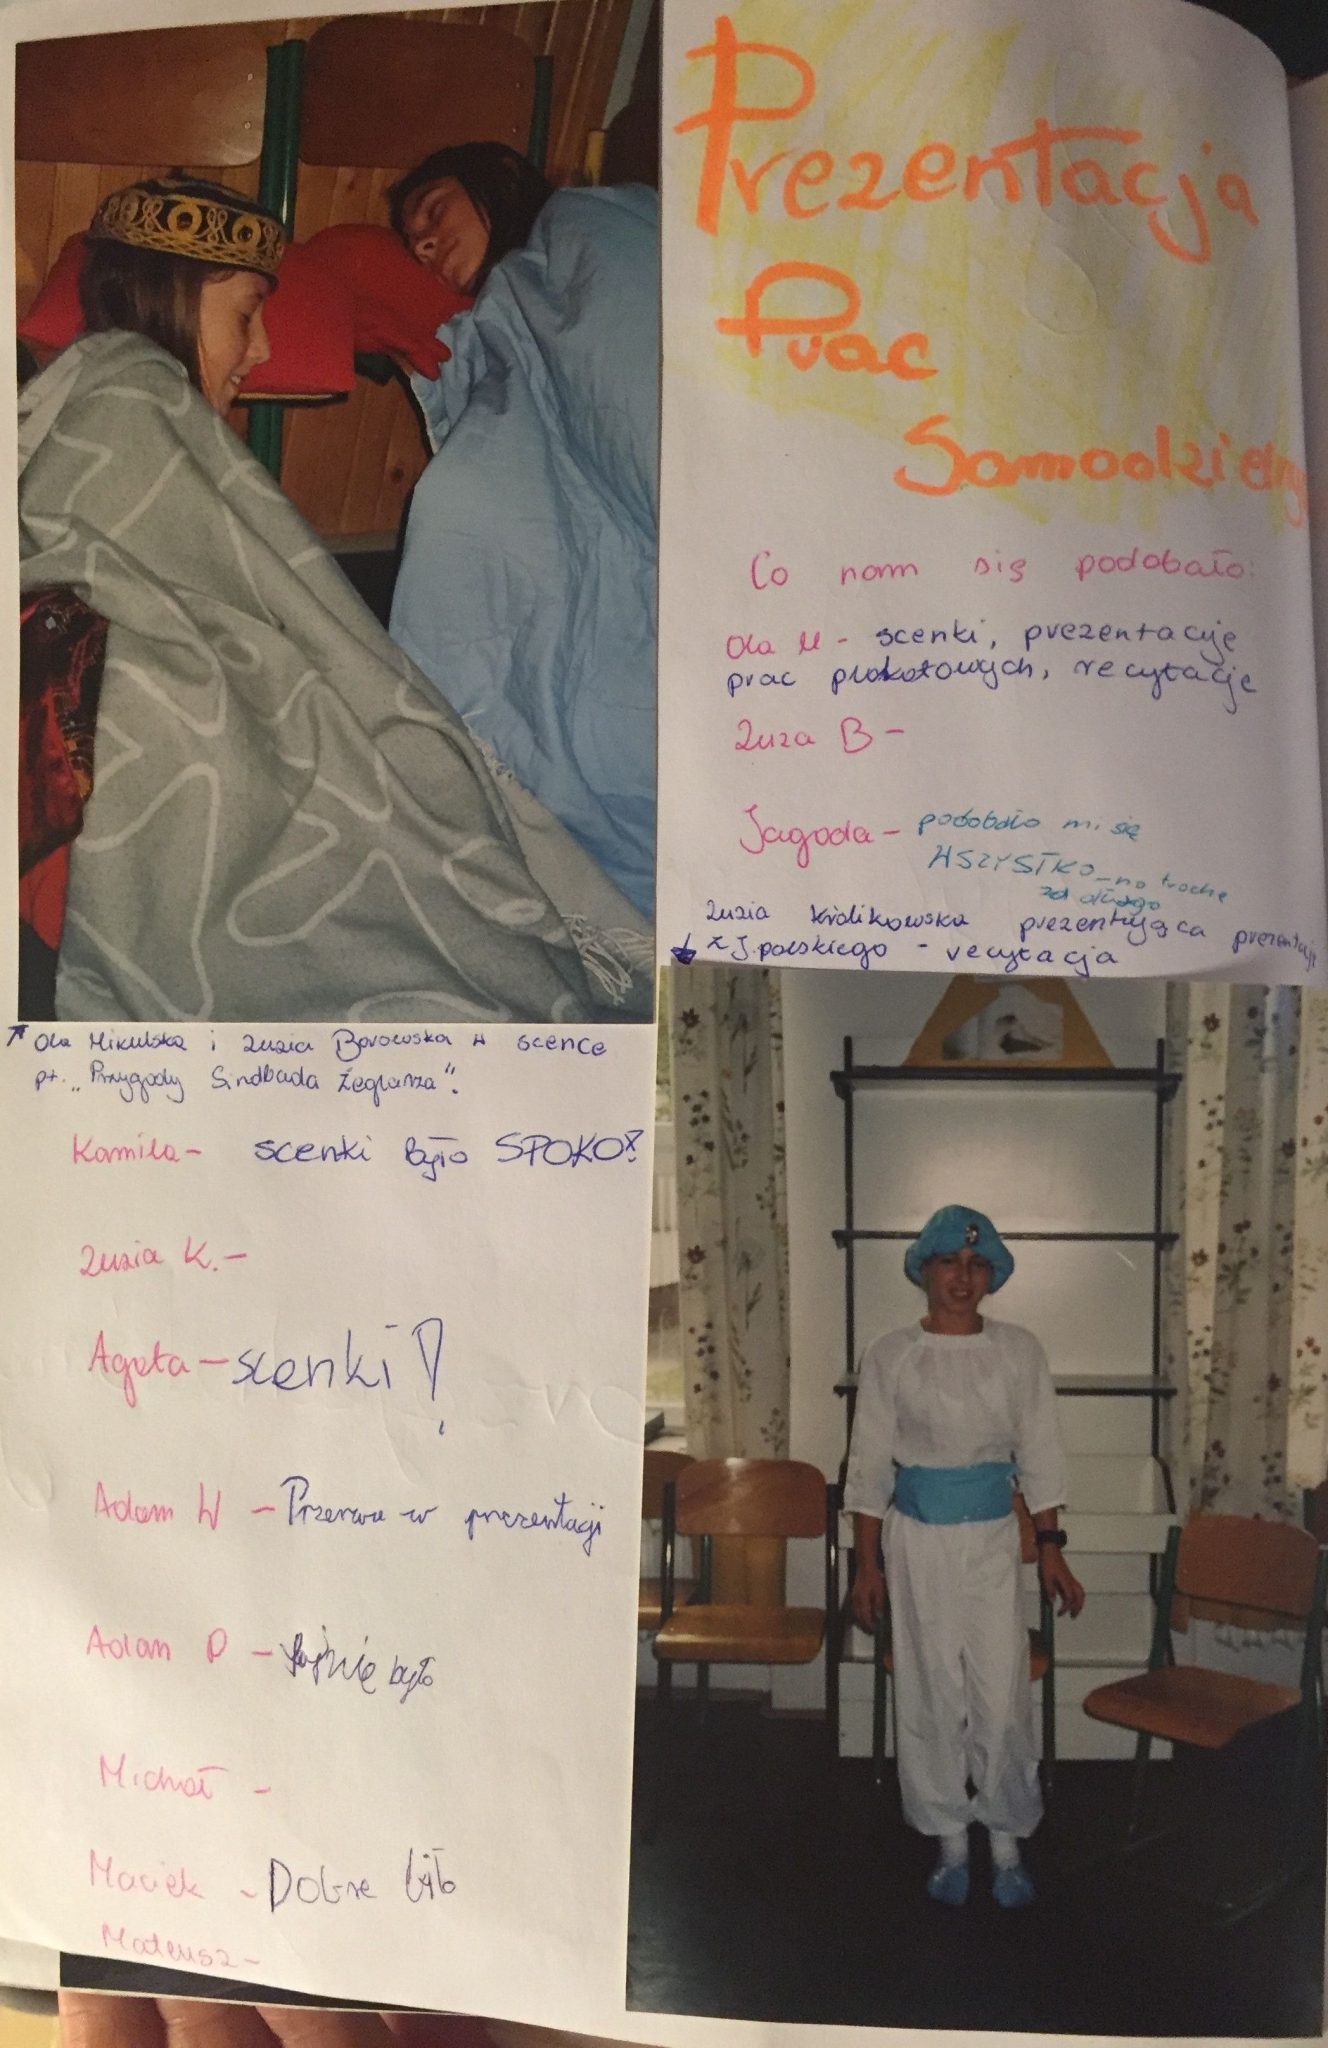 Prezentacja
Prac
Samodzielny
Co nam się podobało:
Ola M - scenki, prezentację
prac plakatowych, recytację
Zuza B -
Jagoda - podobało mi się
WSZYSTKO - no trochę
za długo
Zuzia Królikowska prezentująca prezentację
z J. polskiego - recytacja
Ola Mikulska i Zuzia Borowska w scence
pt. „Przygody Sindbada Żeglarza".
Kamila - scenki było SPOKO!
Zuzia K. -
Agata - scenki!
Adam W - Przerwa w prezentacji
Adam P - fajnie było
Michał -
Maciek - Dobre było
Mateusz -